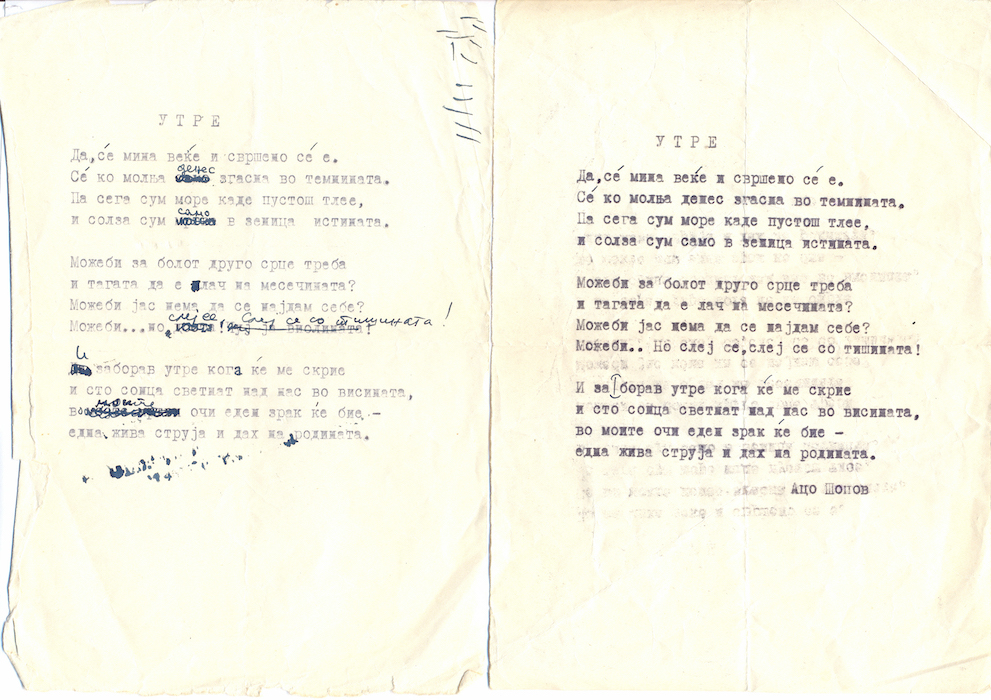 УТРЕ
Да, се́ мина веќе и свршено се́ е.
Се́ ко молња денес згасна во темнината.
Па сега сум море каде пустош тлее,
и солза сум само в зеница истината.
Можеби за болот друго срце треба
и тагата да е лач на месечината?
Можеби јас нема да се најдам себе?
Можеби...но слеј се, слеј се со тишината!
И заборав утре кога ќе ме скрие
и сто сонца светнат над нас во висината,
в моите очи еден зрак ќе бие -
една жива струја и дах на родината.
УТРЕ
Да, се́ мина веќе и свршено се́ е.
Се́ ко молња денес згасна во темнината.
Па сега сум море каде пустош тлее,
и солза сум само в зеница истината.
Можеби за болот друго срце треба
и тагата да е лач на месечината?
Можеби јас нема да се најдам себе?
Можеби.. Но слеј се,слеј се со тишината!
И за борав утре кога ќе ме скрие
и сто сонца светнат над нас во висината,
во моите очи еден зрак ќе бие -
една жива струја и дах на родината.
Ацо Шопов